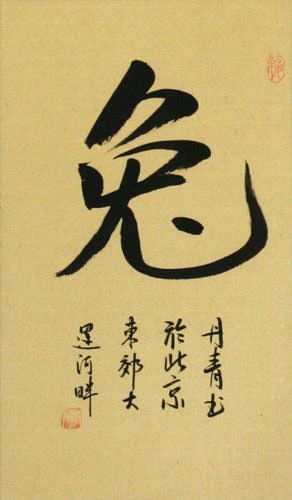 兔
丹青书
於北京
東郊大
運河畔